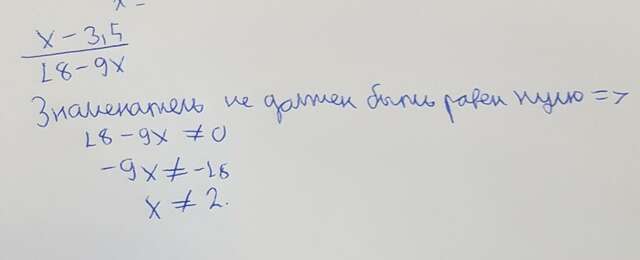 x - 3,5
18 - 9x
Знаменатель не должен быть равен нулю =>
18 - 9x ≠ 0
-9x ≠ -18
x ≠ 2.